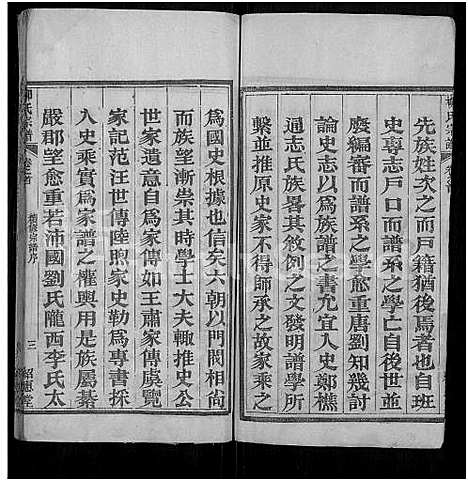 先族姓次之而戶籍猶後焉者也自班
史專志戶口而譜系之學亡自後世並
廢編審而譜系之學愈重唐劉知幾討
論史志以為族譜之書允宜人史鄭樵
通志氏族畧其敘例之文發明譜學所
繫並推原史家不得師承之故家乘之
為國史根據也信矣六朝以門閥相尙
而族望漸崇其時學士大夫輙推史公
世家遺意自為家傳如王肅家傳虞覽
家記范汪世傳陸煦家史勒爲專書採
入史乘實爲家譜之權輿用是族屬綦
嚴郡望愈重若沛國劉氏隴西李氏太
氏宗譜
卷之首
續修宗譜序
三